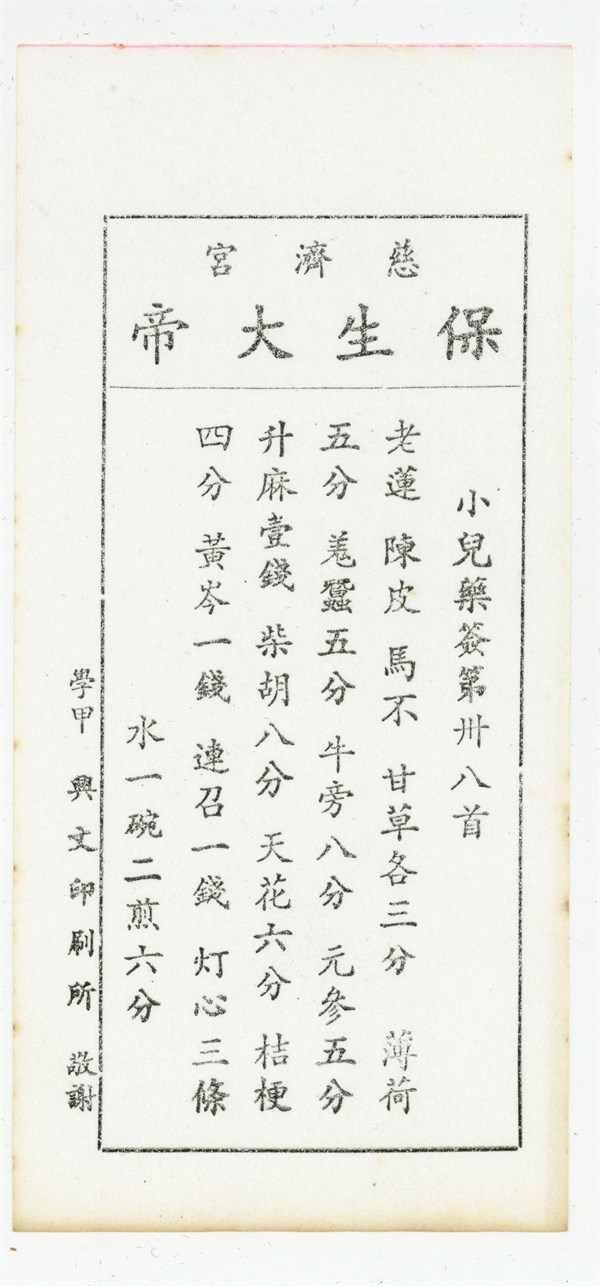 慈濟宮
保生大帝
小兒藥簽第卅八首
老蓮 陳皮 馬不 甘草各三分 薄荷
五分 羗蠶五分 牛旁八分 元參五分
升麻壹錢 柴胡八分 天花六分 桔梗
四分 黃岑一錢 連召一錢 灯心三條
水一碗二煎六分
學甲 興文印刷所 敬謝